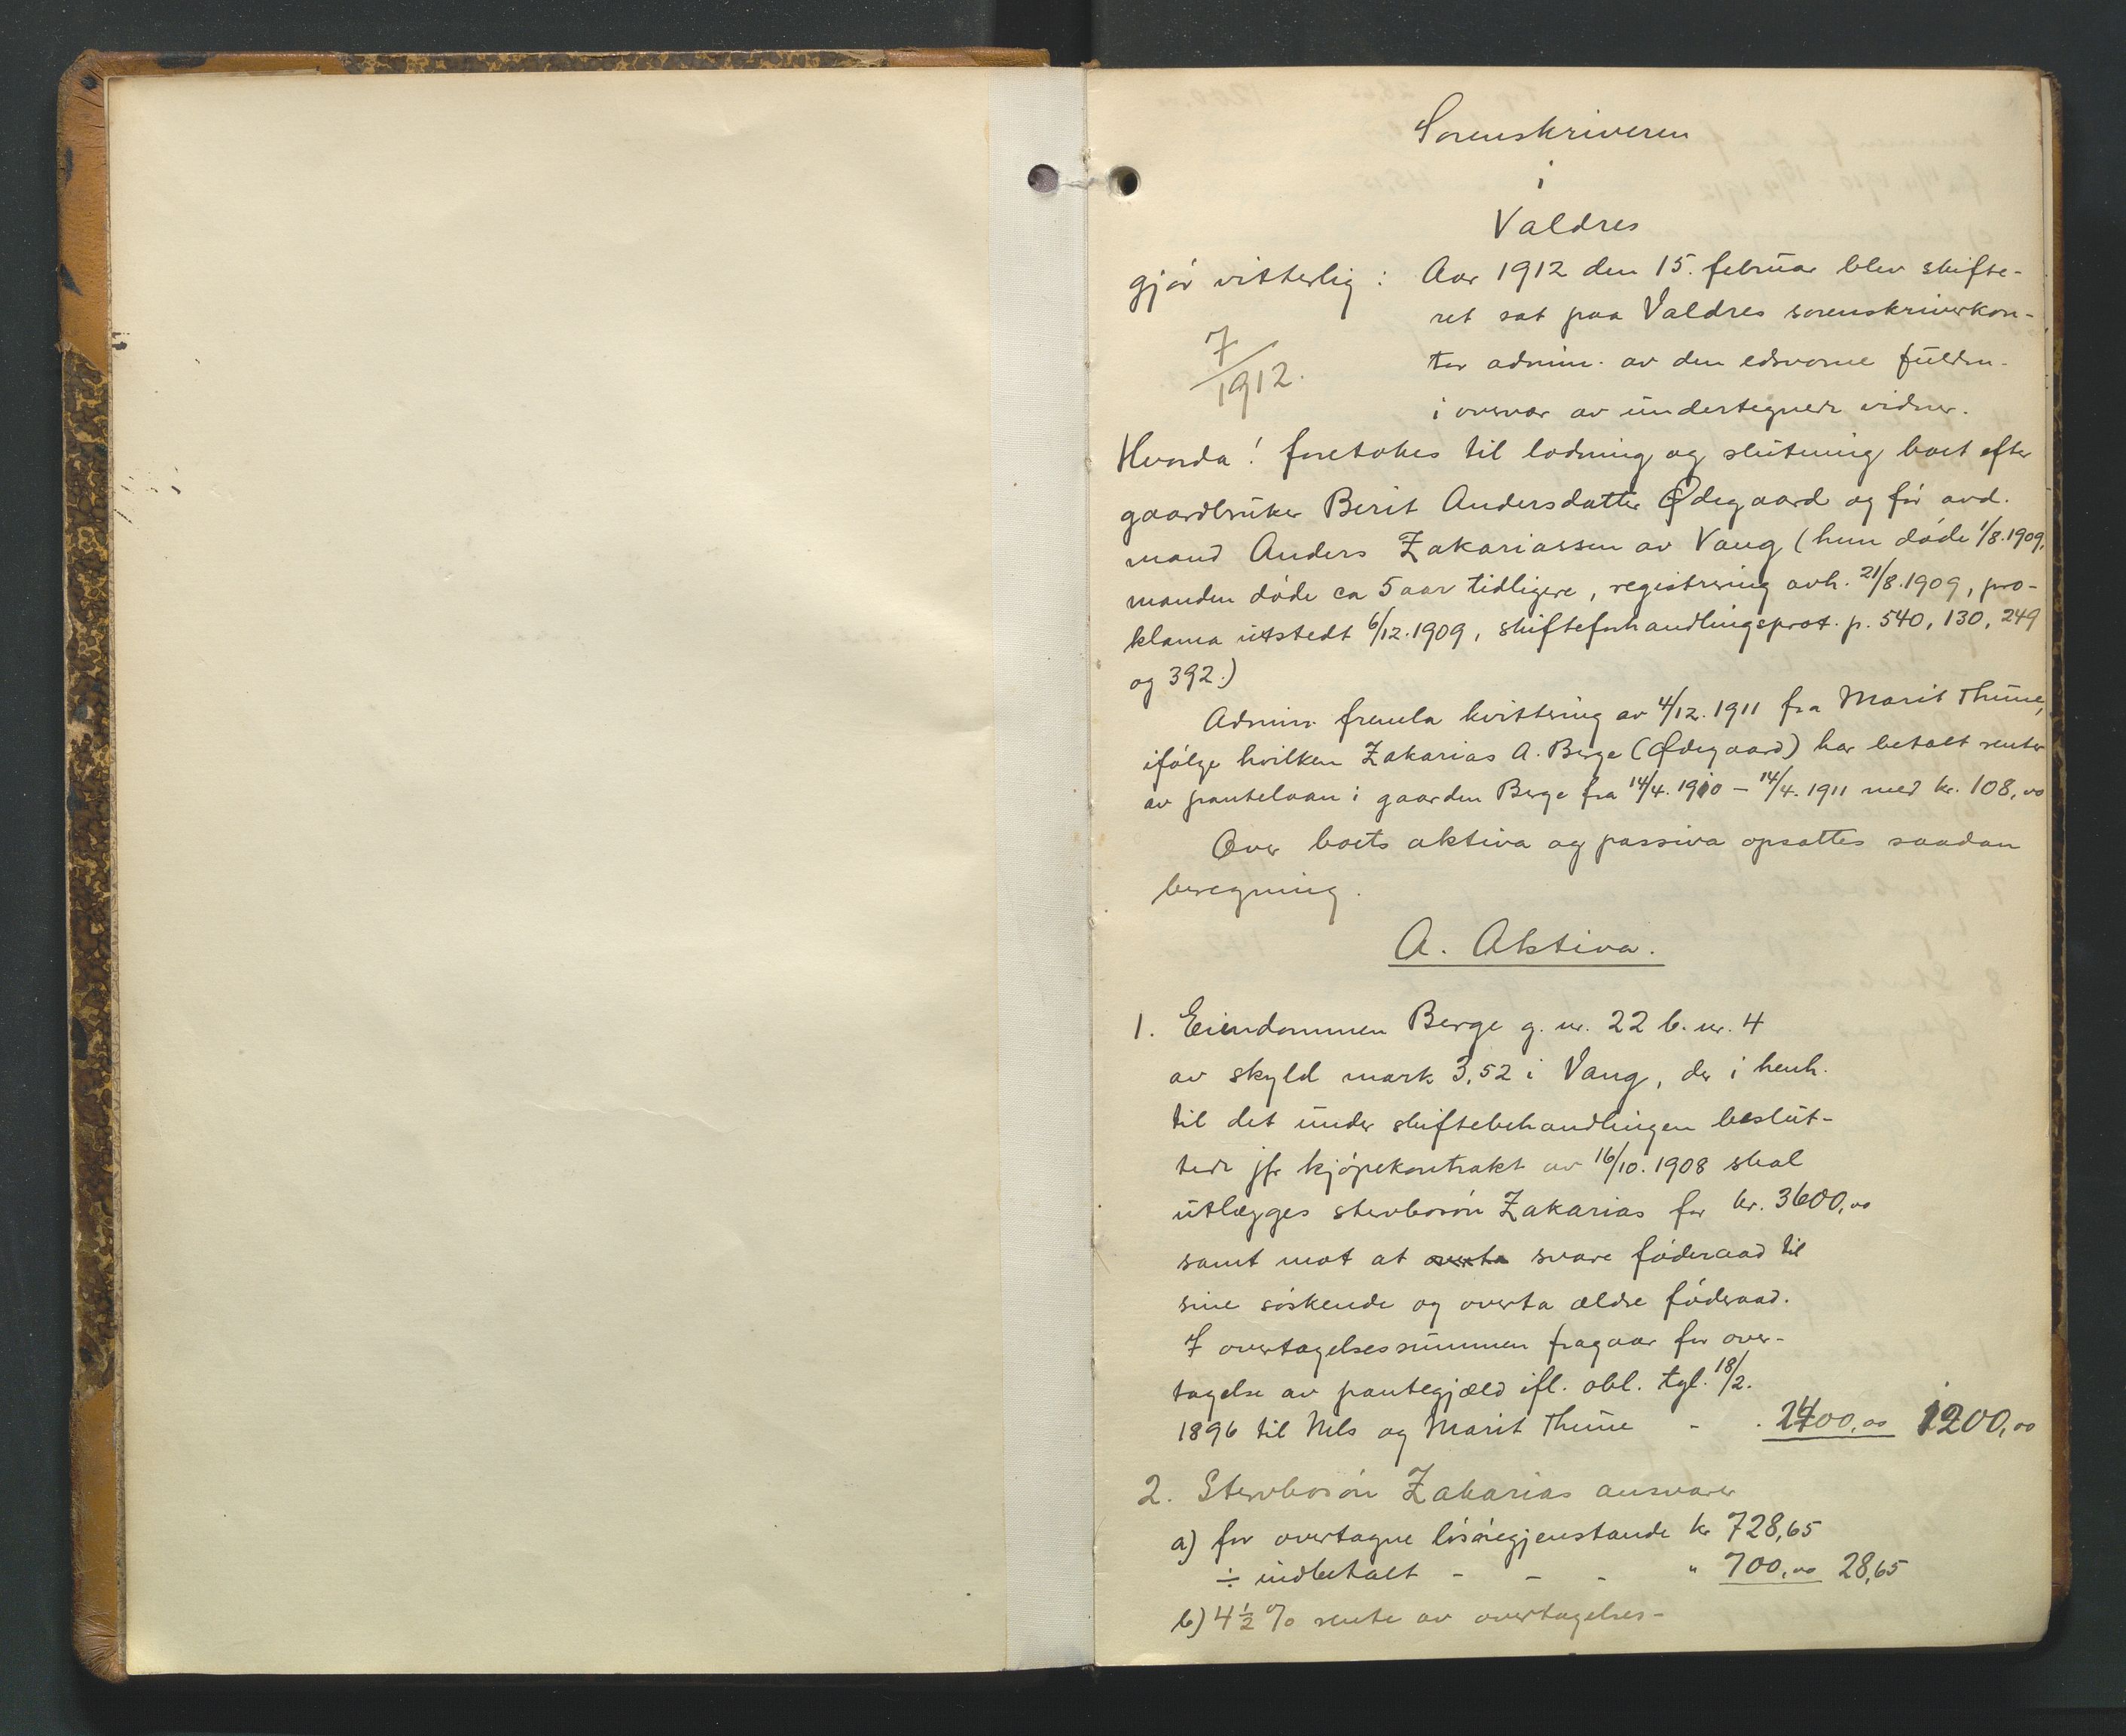 Sorenskriveren
i
Valdres
gjör vitterlig: Aar 1912 den 15. februar blev skifte-
ret sat paa Valdres sorenskriverkon-
tor admin. av den edsvorne fuldm.
i overvær av undertegnede vidner.
7/1912.
Hvorda! foretokes til lodning og slutning boet efter
gaardbruker Berit Andersdatter Ødegaard og før avd.
mand Anders Zakariassen av Vang (hun døde 1/8.1909,
manden døde ca 5 aar tidligere, registrering avh. 21/8.1909, pro-
klama utstedt 6/12.1909, skifteforhandlingsprot. p. 540, 130, 249
og 392.)
Admin fremla kvittering av 4/12. 1911 fra Marit Thune,
ifølge hvilken Zakarias A. Berge (Ødegaard) har betalt renter
av pantelaan i gaarden Berge fra 14/4. 1910 – 14/4. 1911 med kr. 108,00
Over boets aktiva og passiva opsattes saadan
beregning.
A. Aktiva.
1. Eiendommen Berge g. nr. 22 b. nr. 4
av skyld mark 3,52 i Vang, der i henh.
til det under skiftebehandlingen beslut-
tede jfr kjøpekontrakt av 16/10. 1908 skal
utlægges stervbosøn Zakarias for kr. 3600,00
samt mot at overta svare føderaad til
sine søskende og overta ældre føderaad.
I overtagelsessummen fragaar for over-
tagelse av pantegjæld ifl. obl. tgl. 18/2.
1896 til Nils og Marit Thune - . 2400,00 1200,00
2. Stervbosøn Zakarias ansvarer
a) for overtagne løsøregjenstande kr 728,65
÷ indbetalt - - - " 700,00 28,65
b) 4½ % rente av overtagelses-